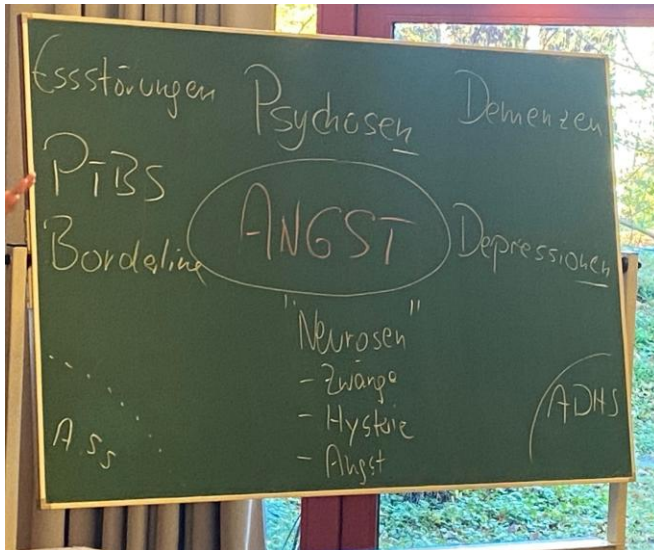 Essstörungen
Psychosen
Demenzen
PTBS
ANGST
Borderline
Depressionen
"Neurosen"
- Zwänge
- Hysterie
- Angst
ASS
ADHS